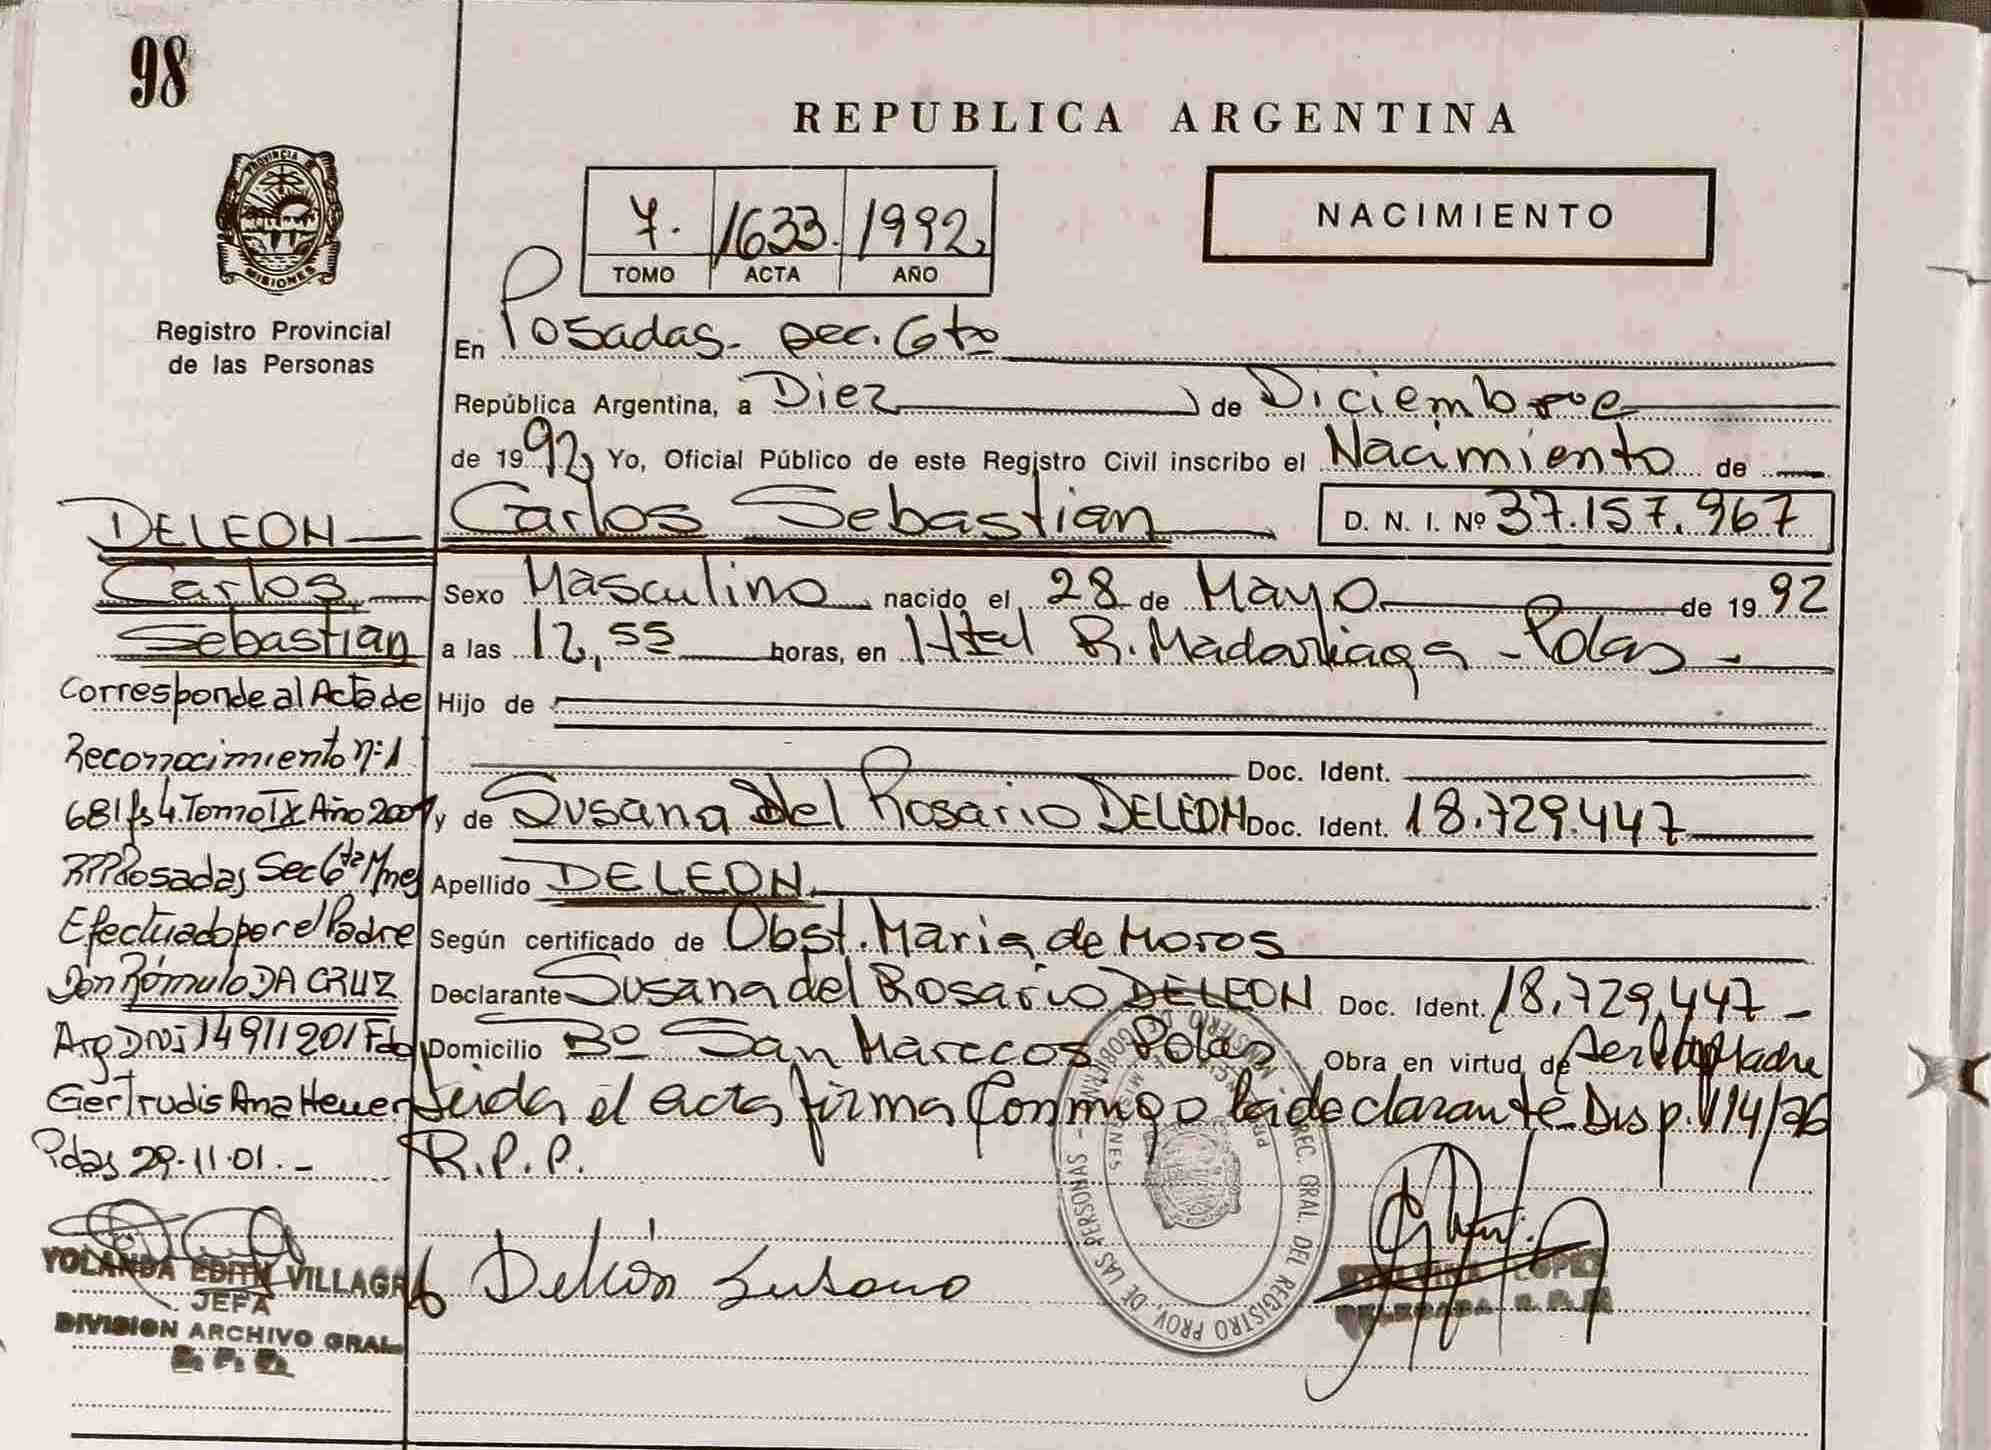 98
REPUBLICA ARGENTINA
PROVINCIA DE
MISIONES
Registro Provincial
de las Personas
7. 1633. 1992,
TOMO ACTA AÑO
NACIMIENTO
En Posadas. sec. 6ta
República Argentina, a Diez de Diciembre
de 1992, Yo, Oficial Público de este Registro Civil inscribo el Nacimiento de
Carlos Sebastian D. N. I. Nº 37.157.967
Sexo Masculino nacido el 28 de Mayo de 1992
a las 12,55 horas, en Htal R. Madariaga - Pdas -
Hijo de
Doc. Ident.
y de Susana del Rosario DELEON Doc. Ident. 18.729.447
Apellido DELEON
Según certificado de Obst. Maria de Moros
Declarante Susana del Rosario DELEON Doc. Ident. 18.729.447 -
Domicilio Bº San Marccos Pdas Obra en virtud de ser la Madre
Leida el acta firma Conmigo la declarante Disp. 114/76
R.P.P.
Deleón Susana
LOPEZ
DELEGADA R.P.P.
DELEON
Carlos
Sebastian
Corresponde al Acta de
Reconocimiento nº 1
681 fs 4 Tomo IX Año 2001
RPP Posadas Sec 6ta Mnes
Efectuado por el Padre
Don Rómulo DA CRUZ
Arg DNI 14911201 Fdo
Gertrudis Ana Heuer
Pdas 29-11-01.-
YOLANDA EDITH VILLAGRA
JEFA
DIVISION ARCHIVO GRAL.
R. P. P.
DIREC. GRAL. DEL REGISTRO PROV. DE LAS PERSONAS -